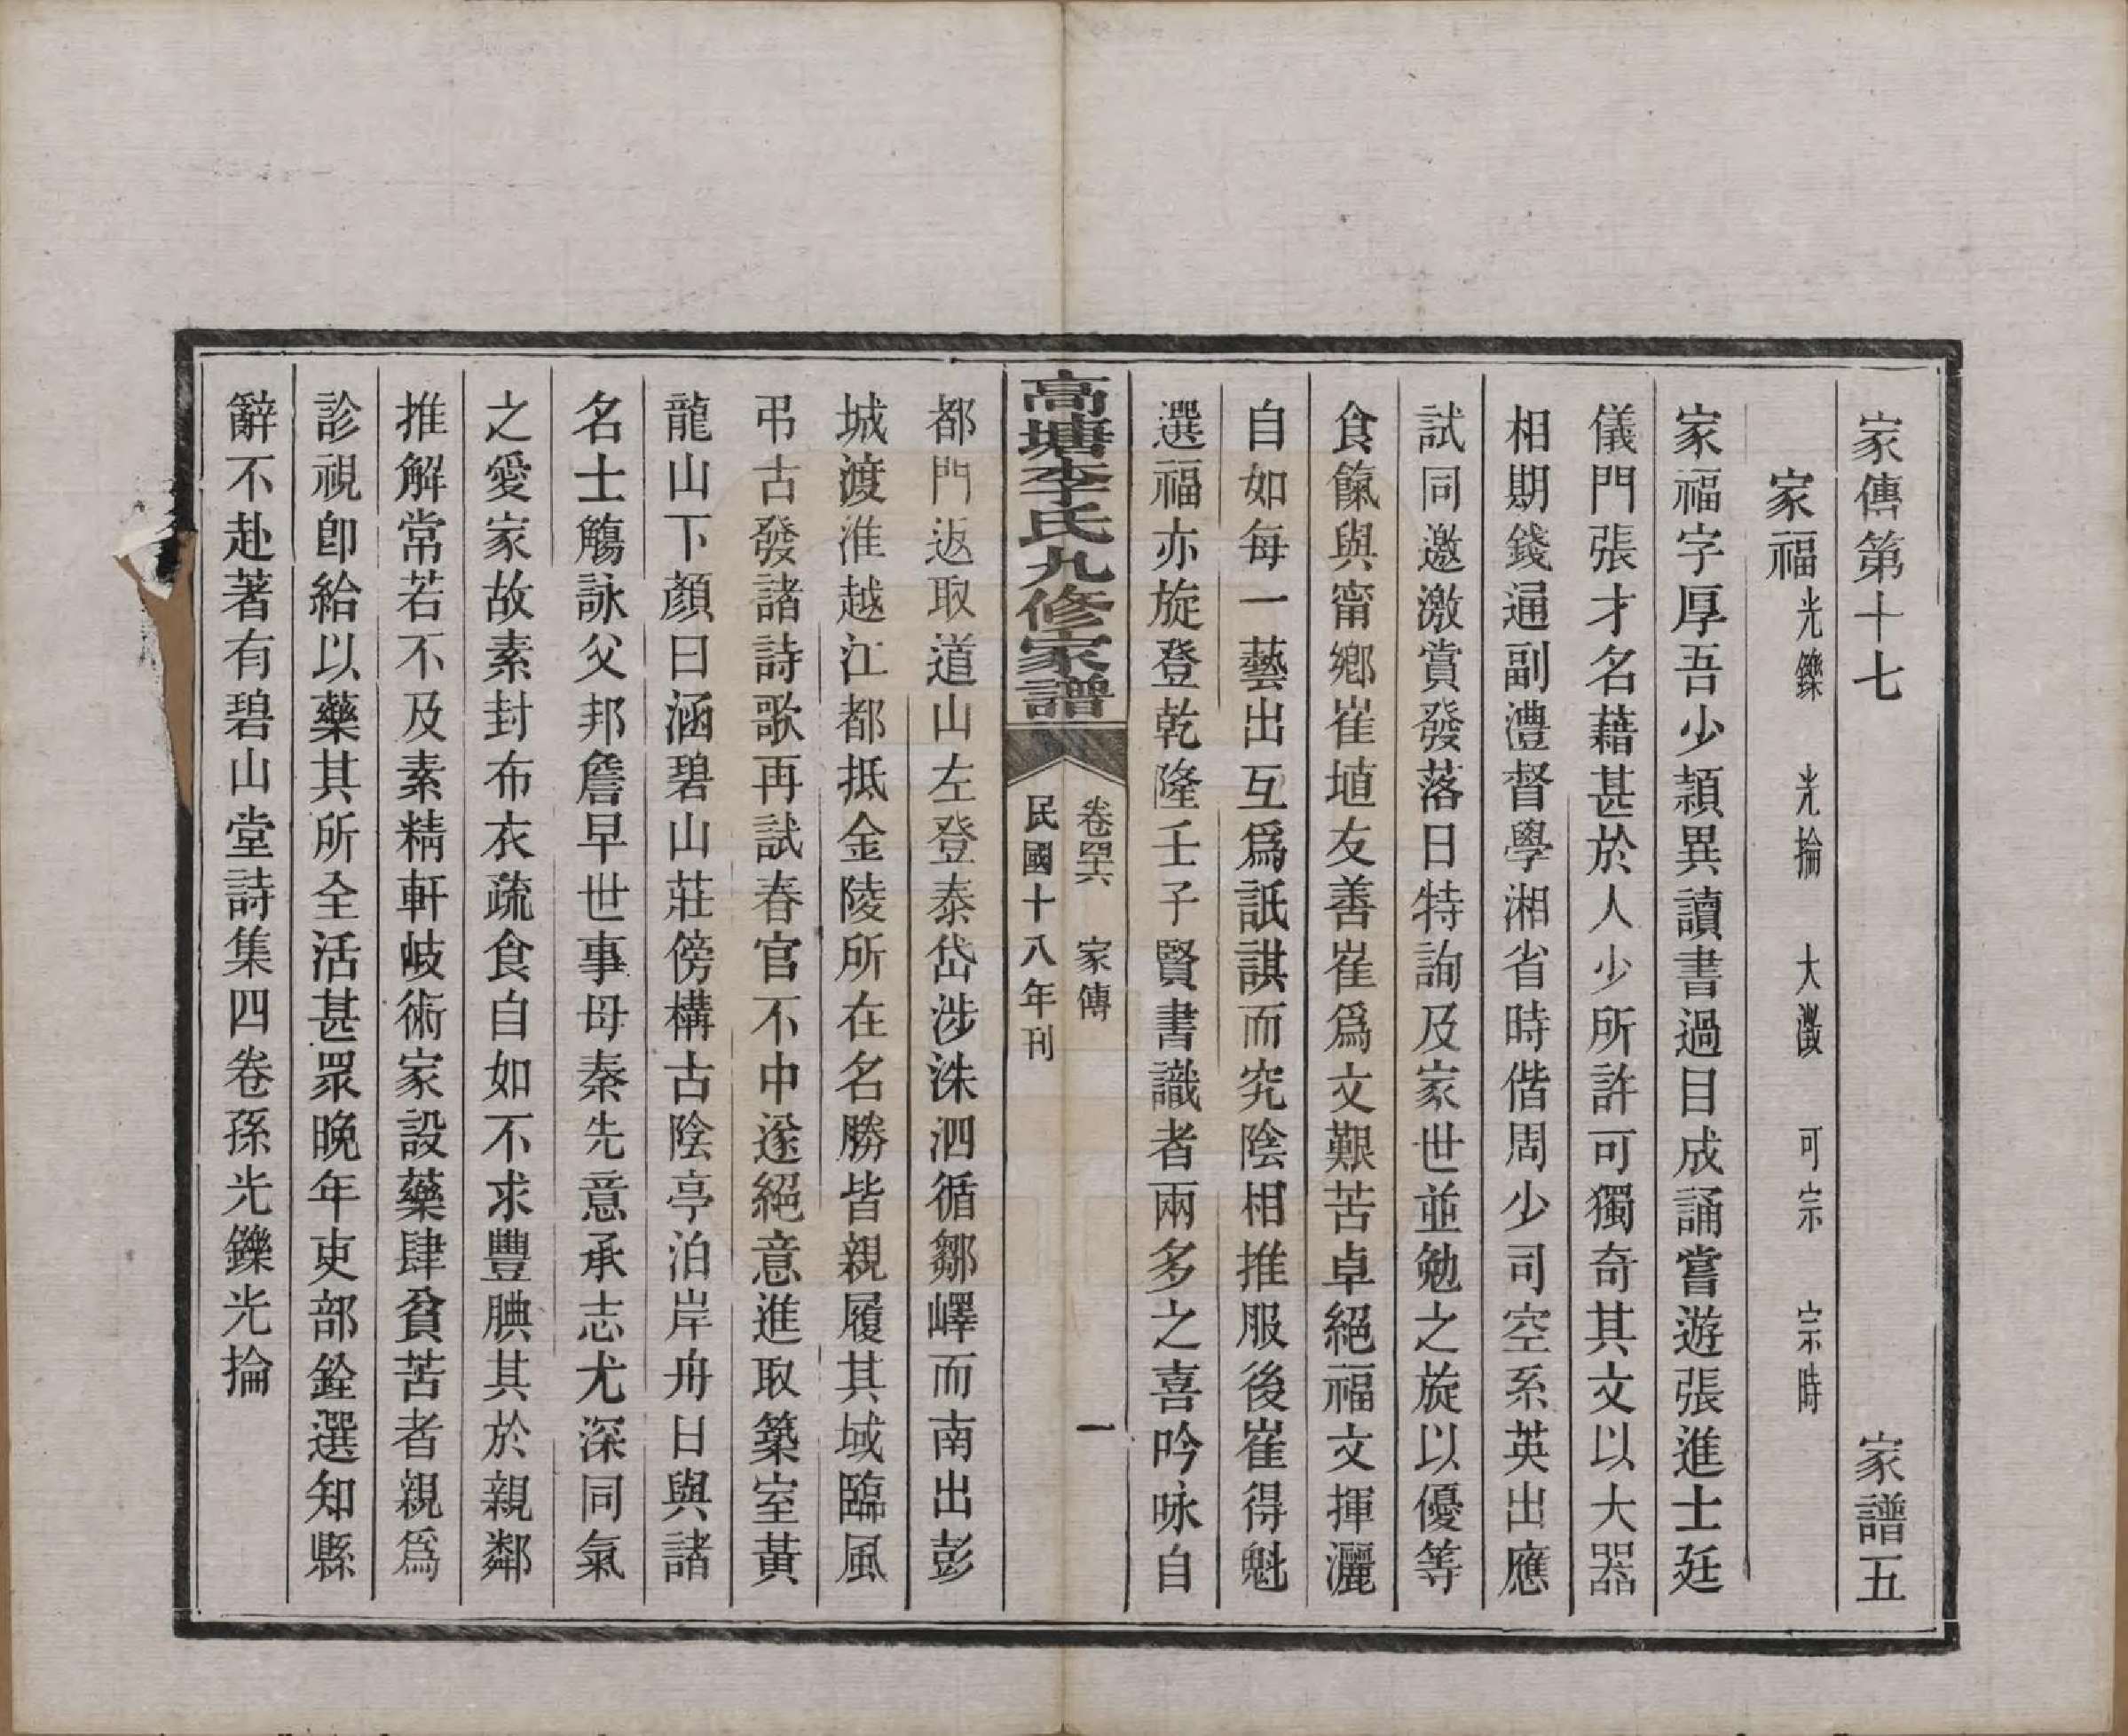 家傳第十七　家譜五
家福光鑠　光掄　大瀓　可宗　宗時
家福字厚吾少穎異讀書過目成誦嘗遊張進士廷
儀門張才名藉甚於人少所許可獨奇其文以大器
相期錢通副灃督學湘省時偕周少司空系英出應
試同邀激賞發落日特詢及家世並勉之旋以優等
食餼與甯鄉崔埴友善崔爲文艱苦卓絕福文揮灑
自如每一藝出互爲詆諆而究陰相推服後崔得魁
選福亦旋登乾隆壬子賢書識者兩多之喜吟咏自
高塘李氏九修家譜
卷罢　家傳　一
民國十八年刊
都門返取道山左登泰岱涉洙泗循鄒嶧而南出彭
城渡淮越江都抵金陵所在名勝皆親履其域臨風
弔古發諸詩歌再試春官不中遂絕意進取築室黃
龍山下顏曰涵碧山莊傍構古陰亭泊岸舟日與諸
名士觴詠父邦詹早世事母秦先意承志尤深同氣
之愛家故素封布衣疏食自如不求豐腆其於親鄰
推解常若不及素精軒岐術家設藥肆貧苦者親爲
診視卽給以藥其所全活甚眾晚年吏部銓選知縣
辭不赴著有碧山堂詩集四卷孫光鑠光掄